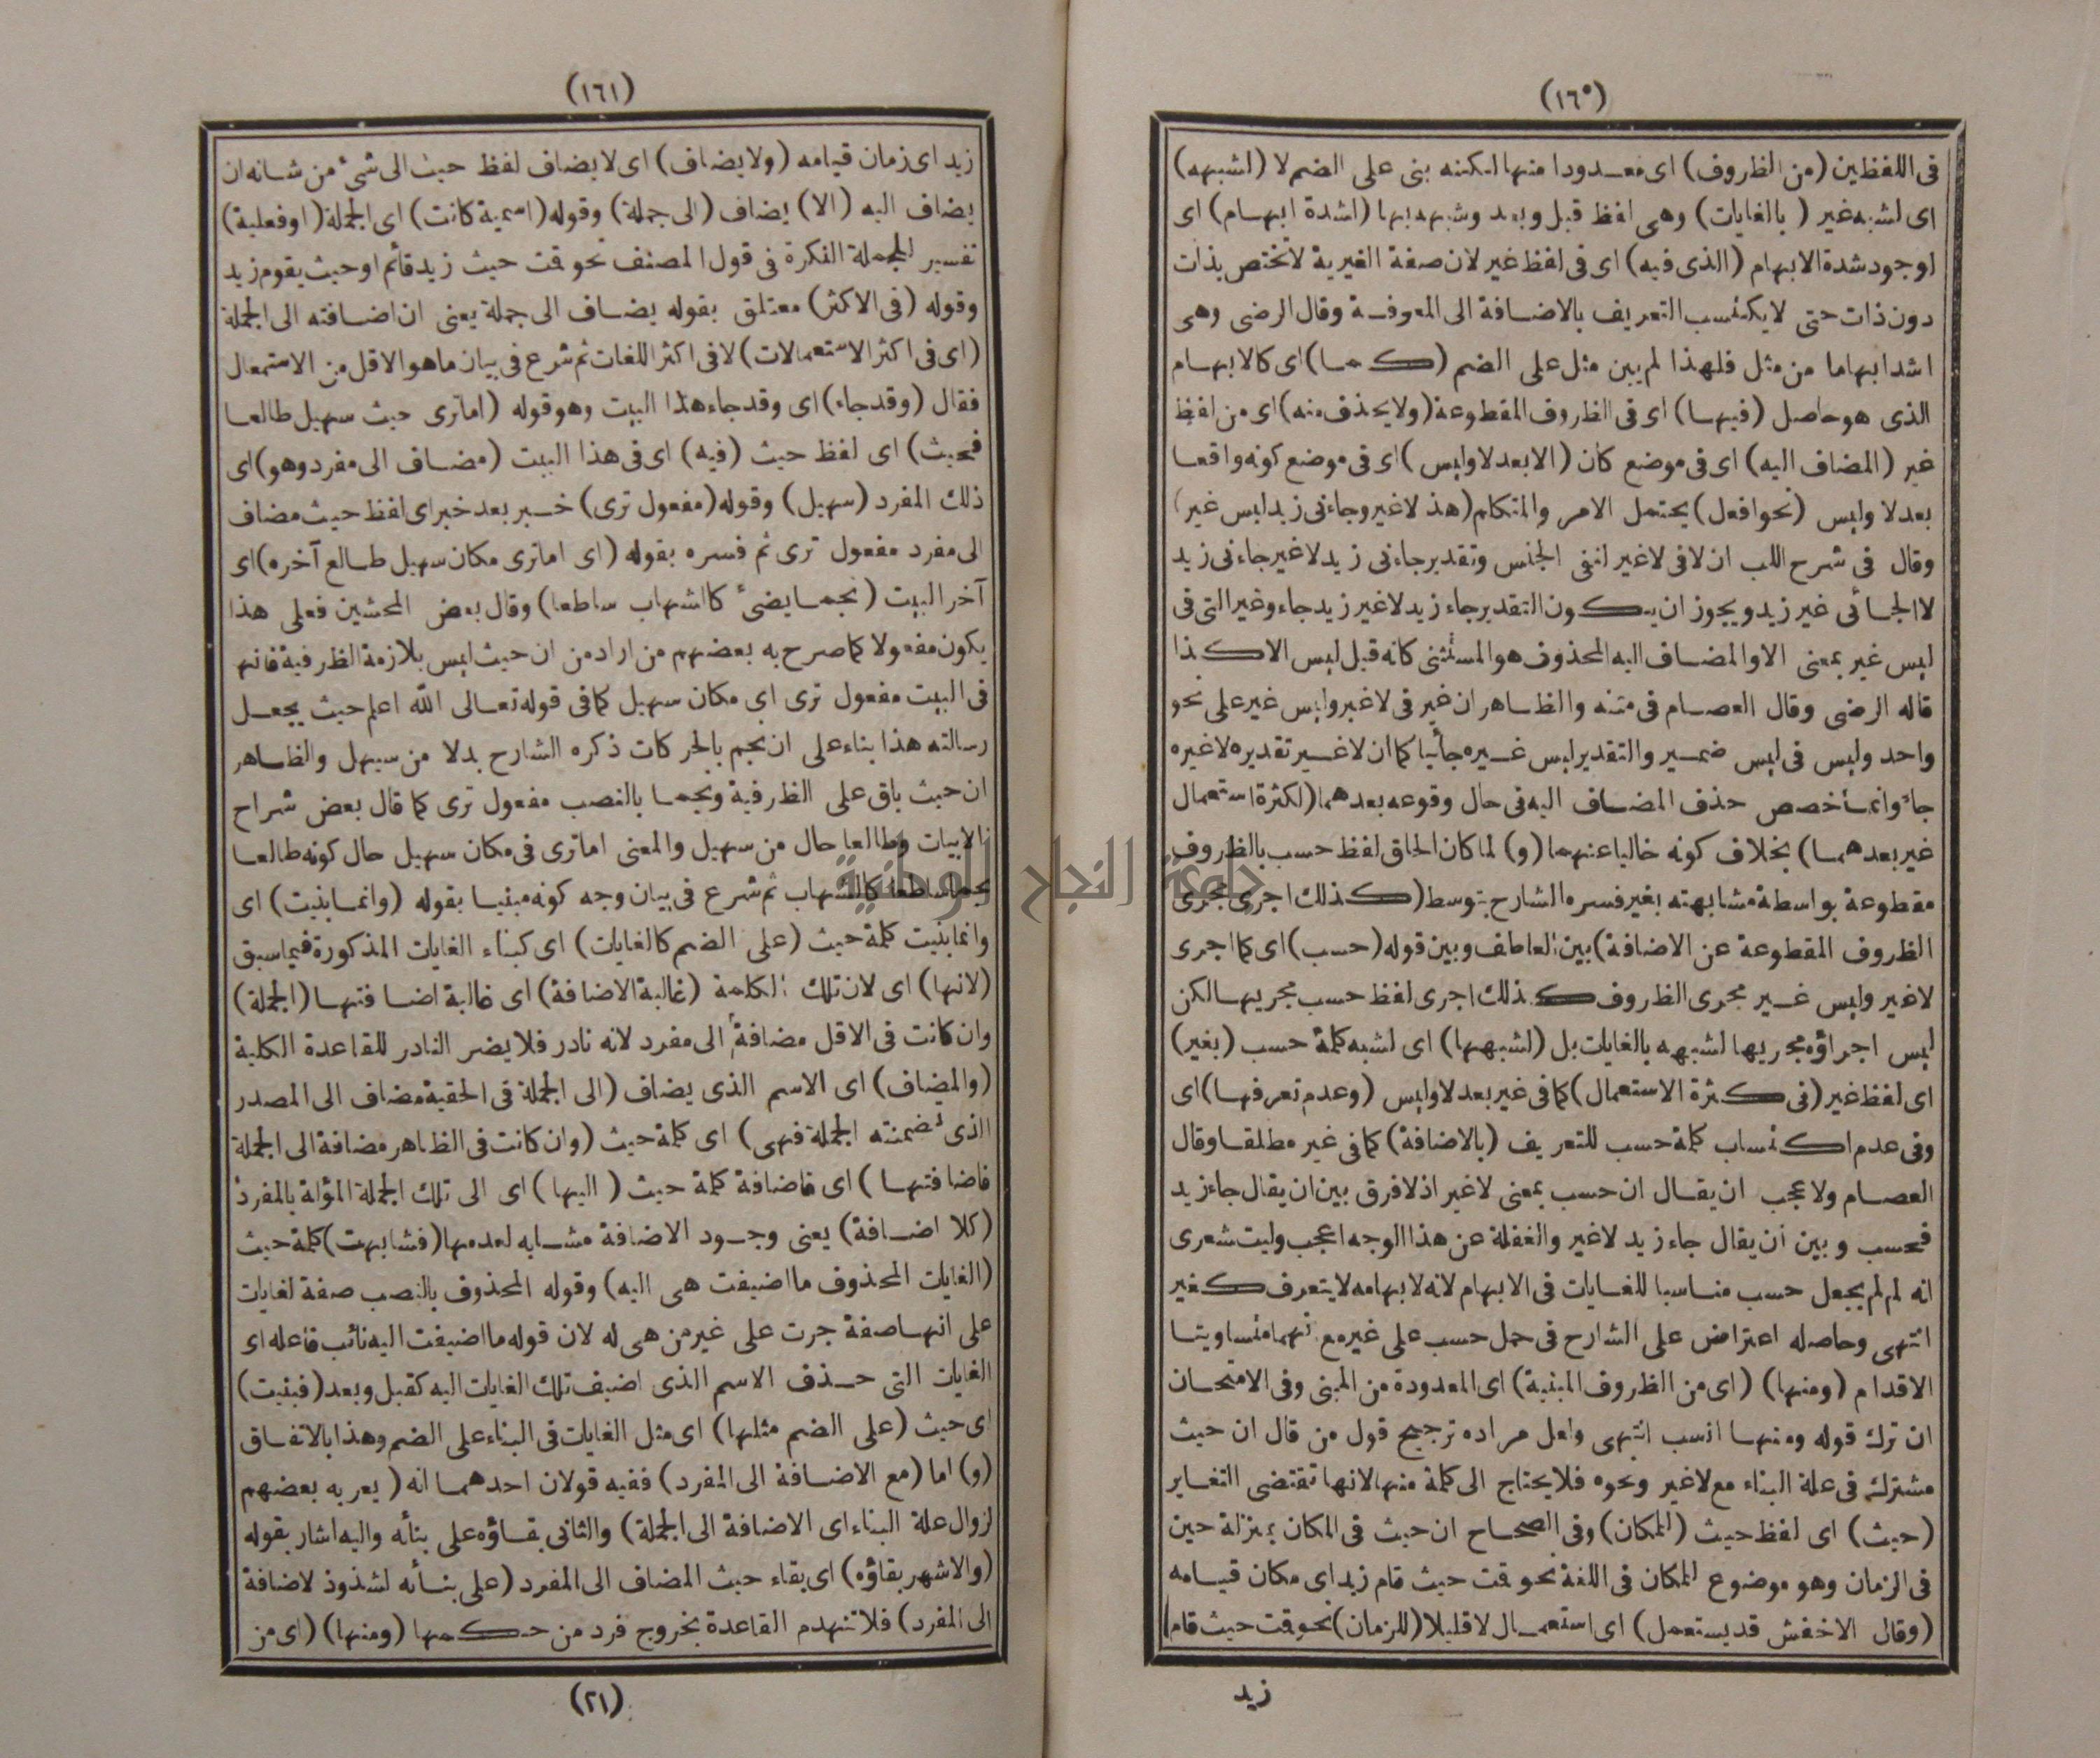 (١٦٠)
فى اللفظين (من الظروف) اى معدودا منها لكنه بنى على الضم لا (لشبهه)
اى لشبه غير (بالغايات) وهى لفظ قبل وبعد وشبهه بها (لشدة ابهام) اى
لوجود شدة الابهام (الذى فيه) اى فى لفظ غير لان صفة الغيرية لا تختص بذات
دون ذات حتى لا يكتسب التعريف بالاضافة الى المعرفة وقال الرضى وهى
اشد ابهاما من مثل فلهذا لم يبن مثل على الضم (كما) اى كالابهام
الذى هو حاصل (فيها) اى فى الظروف المقطوعة (ولا يحذف منه) اى من لفظ
غير (المضاف اليه) اى فى موضع كان (الا بعد لا وليس) اى فى موضع كونه واقعا
بعد لا وليس (نحو افعل) يحتمل الامر والمتكلم (هذ لا غير وجاءنى زيد ليس غير)
وقال فى شرح اللب ان لا فى لا غير لنفى الجنس وتقدير جاءنى زيد لا غير جاءنى زيد
لا الجائى غير زيد ويجوز ان يكون التقدير جاء زيد لا غير زيد جاء وغير التى فى
ليس غير بمعنى الا والمضاف اليه المحذوف هو المستثنى كانه قيل ليس الا كذا
قاله الرضى وقال العصام فى متنه والظاهر ان غير فى لا غير وليس غير على نحو
واحد وليس فى ليس ضمير والتقدير ليس غيره جائيا كما ان لا غير تقديره لا غيره
جاء وانما خصص حذف المضاف اليه فى حال وقوعه بعدهما (لكثرة استعمال
غير بعدهما) بخلاف كونه خاليا عنهما (و) لما كان الحاق لفظ حسب بالظروف
مقطوعة بواسطة مشابهته بغير فسره الشارح بتوسط (كذلك اجرى مجرى
الظروف المقطوعة عن الاضافة) بين العاطف وبين قوله (حسب) اى كما اجرى
لا غير وليس غير مجرى الظروف كذلك اجرى لفظ حسب مجريها لكن
ليس اجراؤه مجريها لشبهه بالغايات بل (لشبهها) اى لشبه كلمة حسب (بغير)
اى لفظ غير (فى كثرة الاستعمال) كما فى غير بعد لا وليس (وعدم تعرفها) اى
وفى عدم اكتساب كلمة حسب للتعريف (بالاضافة) كما فى غير مطلقا وقال
العصام ولا عجب ان يقال ان حسب بمعنى لا غير اذ لا فرق بين ان يقال جاء زيد
فحسب وبين ان يقال جاء زيد لا غير والغفلة عن هذا الوجه اعجب وليت شعرى
انه لم لم يجعل حسب مناسبا للغايات فى الابهام لانه لابهامه لا يتعرف كغير
انتهى وحاصله اعتراض على الشارح فى حمل حسب على غير مع انهما متساويتا
الاقدام (ومنها) (اى من الظروف المبنية) اى المعدودة من المبنى وفى الامتحان
ان ترك قوله ومنها انسب انتهى ولعل مراده ترجيح قول من قال ان حيث
مشترك فى علة البناء مع لا غير ونحوه فلا يحتاج الى كلمة منها لانها تقتضى التغاير
(حيث) اى لفظ حيث (للمكان) وفى الصحاح ان حيث فى المكان بمنزلة حين
فى الزمان وهو موضوع للمكان فى اللغة نحو قت حيث قام زيد اى مكان قيامه
(وقال الاخفش قد يستعمل) اى استعمالا قليلا (للزمان) نحو قت حيث قام
زيد
(١٦١)
زيد اى زمان قيامه (ولا يضاف) اى لا يضاف لفظ حيث الى شئ من شانه ان
يضاف اليه (الا) يضاف (الى جملة) وقوله (اسمية كانت) اى الجملة (او فعلية)
تفسير للجملة النكرة فى قول المصنف نحو قت حيث زيد قائم او حيث يقوم زيد
وقوله (فى الاكثر) متعلق بقوله يضاف الى جملة يعنى ان اضافته الى الجملة
(اى فى اكثر الاستعمالات) لا فى اكثر اللغات ثم شرع فى بيان ما هو الاقل من الاستعمال
فقال (وقد جاء) اى وقد جاء هذا البيت وهو قوله (اما ترى حيث سهيل طالعا
فحيث) اى لفظ حيث (فيه) اى فى هذا البيت (مضاف الى مفرد وهو) اى
ذلك المفرد (سهيل) وقوله (مفعول ترى) خبر بعد خبر اى لفظ حيث مضاف
الى مفرد مفعول ترى ثم فسره بقوله (اى اما ترى مكان سهيل طالع آخره) اى
آخر البيت (نجما يضئ كالشهاب ساطعا) وقال بعض المحشين فعلى هذا
يكون مفعولا كما صرح به بعضهم من اراد من ان حيث ليس بلازمة الظرفية فانها
فى البيت مفعول ترى اى مكان سهيل كما فى قوله تعالى الله اعلم حيث يجعل
رسالته هذا بناء على ان نجم بالحركات ذكره الشارح بدلا من سهيل والظاهر
ان حيث باق على الظرفية ونجما بالنصب مفعول ترى كما قال بعض شراح
الابيات وطالعا حال من سهيل والمعنى اما ترى فى مكان سهيل حال كونه طالعا
نجما ساطعا كالشهاب ثم شرع فى بيان وجه كونه مبنيا بقوله (وانما بنيت) اى
وانما بنيت كلمة حيث (على الضم كالغايات) اى كبناء الغايات المذكورة فيما سبق
(لانها) اى لان تلك الكلمة (غالبة الاضافة) اى غالبة اضافتها (الجملة)
وان كانت فى الاقل مضافة الى مفرد لانه نادر فلا يضر النادر للقاعدة الكلية
(والمضاف) اى الاسم الذى يضاف (الى الجملة فى الحقيقة مضاف الى المصدر
الذى تضمنته الجملة فهى) اى كلمة حيث (وان كانت فى الظاهر مضافة الى الجملة
فاضافتها) اى فاضافة كلمة حيث (اليها) اى الى تلك الجملة المؤلة بالمفرد
(كلا اضافة) يعنى وجود الاضافة مشابه لعدمها (فشابهت) كلمة حيث
(الغايات المحذوف ما اضيفت هى اليه) وقوله المحذوف بالنصب صفة لغايات
على انها صفة جرت على غير من هى له لان قوله ما اضيفت اليه نائب فاعله اى
الغايات التى حذف الاسم الذى اضيف تلك الغايات اليه كقبل وبعد (فبنيت)
اى حيث (على الضم مثلها) اى مثل الغايات فى البناء على الضم وهذا بالاتفاق
(و) اما (مع الاضافة الى المفرد) ففيه قولان احدهما انه (يعربه بعضهم
لزوال علة البناء اى الاضافة الى الجملة) والثانى بقاؤه على بنائه واليه اشار بقوله
(والاشهر بقاؤه) اى بقاء حيث المضاف الى المفرد (على بنائه لشذوذ لاضافة
الى المفرد) فلا تنهدم القاعدة بخروج فرد من حكمها (ومنها) (اى من
(٢١)
جامعة النجاح الوطنية